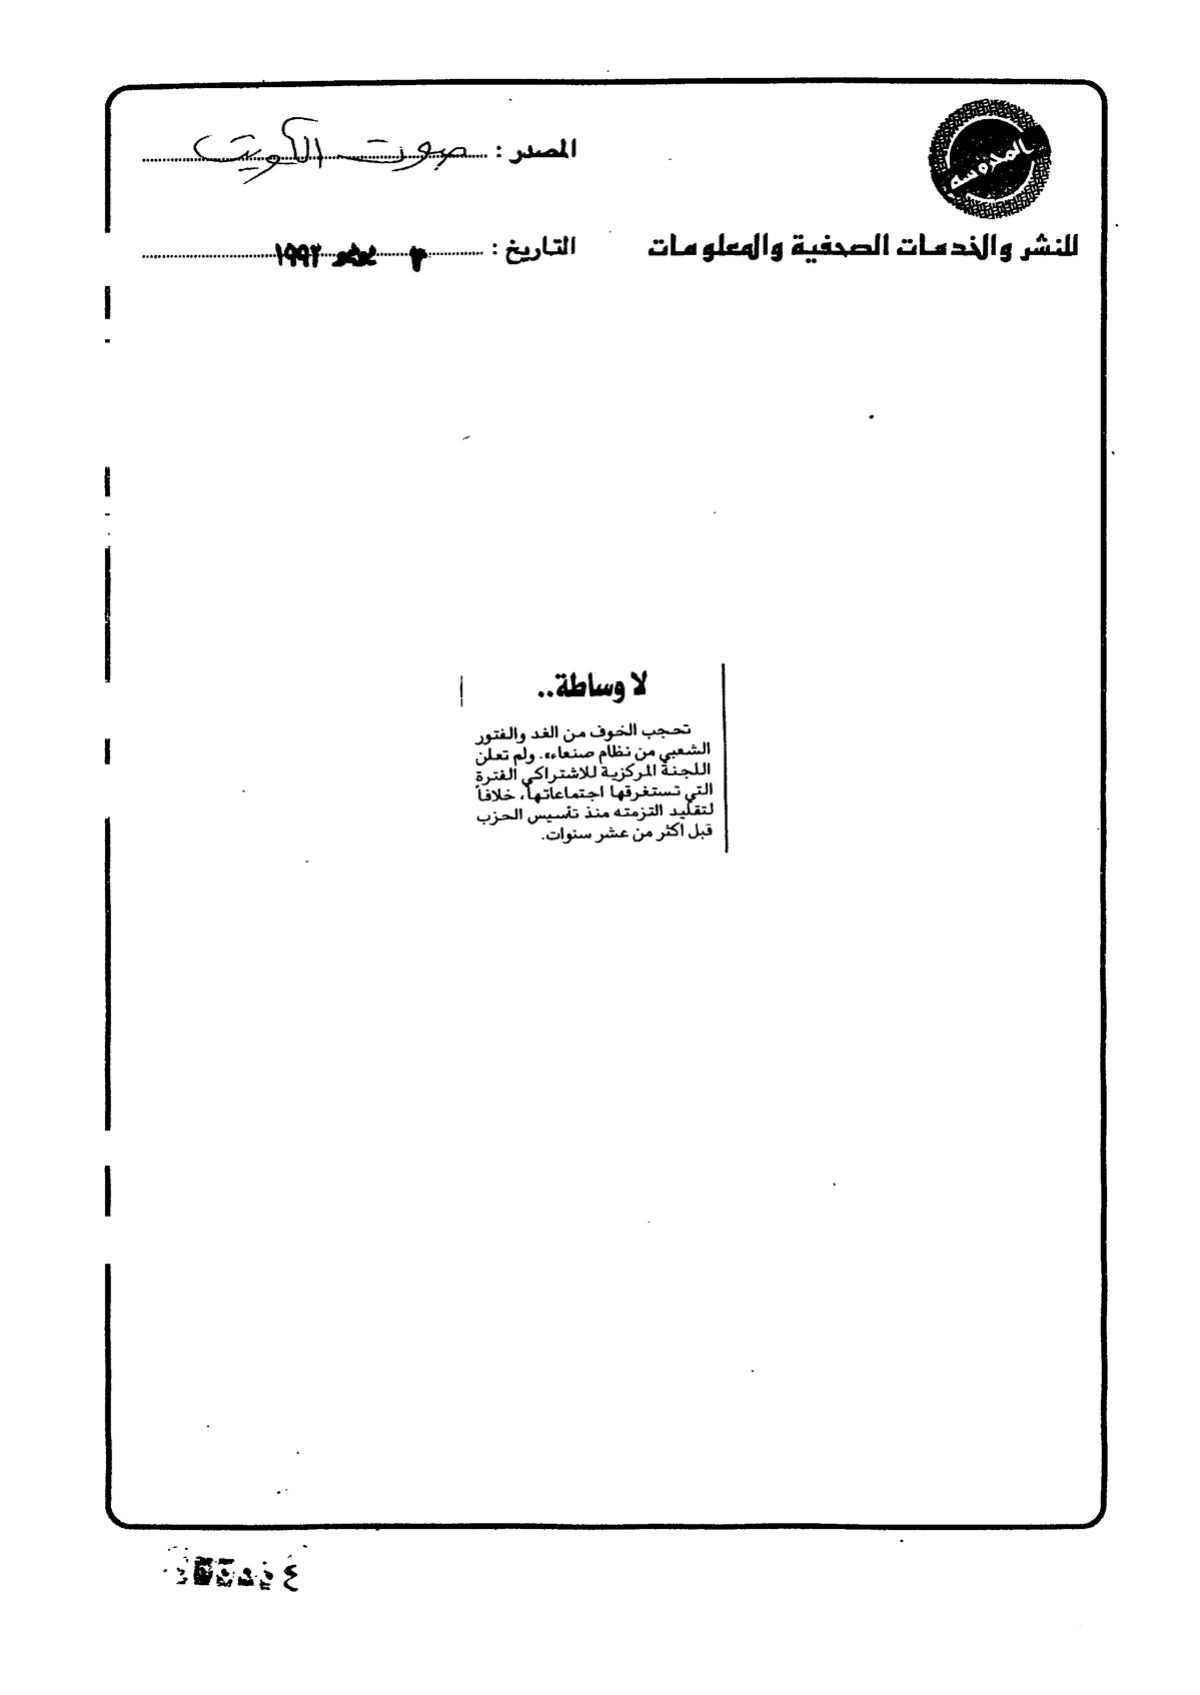 المدروسة
المصدر : صوت الكويت
للنشر والخدمات الصحفية والمعلومات
التاريخ : ٣ يونيو ١٩٩٢
لا وساطة..
تحجب الخوف من الغد والفتور
الشعبي من نظام صنعاء». ولم تعلن
اللجنة المركزية للاشتراكي الفترة
التي تستغرقها اجتماعاتها، خلافاً
لتقليد التزمته منذ تأسيس الحزب
قبل اكثر من عشر سنوات.